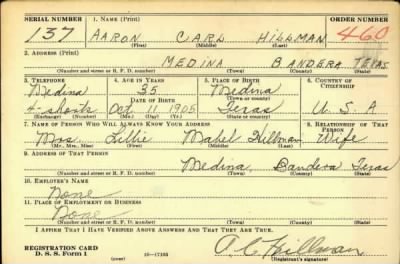 SERIAL NUMBER 1. NAME (Print) ORDER NUMBER
137 AARON CARL HILLMAN 460
(First) (Middle) (Last)
2. ADDRESS (Print)
MEDINA BANDERA TEXAS
(Number and street or R. F. D. number) (Town) (County) (State)
3. TELEPHONE 4. AGE IN YEARS 5. PLACE OF BIRTH 6. COUNTRY OF CITIZENSHIP
Medina 35 Medina
DATE OF BIRTH (Town or county)
4-shorts Oct 11 1905 Texas U. S. A
(Exchange) (Number) (Mo.) (Day) (Yr.) (State or country)
7. NAME OF PERSON WHO WILL ALWAYS KNOW YOUR ADDRESS 8. RELATIONSHIP OF THAT PERSON
Mrs. Lillie Mabel Hillman Wife
(Mr., Mrs., Miss) (First) (Middle) (Last)
9. ADDRESS OF THAT PERSON
Medina, Bandera Texas
(Number and street or R. F. D. number) (Town) (County) (State)
10. EMPLOYER'S NAME
None
11. PLACE OF EMPLOYMENT OR BUSINESS
None
(Number and street or R. F. D. number) (Town) (County) (State)
I AFFIRM THAT I HAVE VERIFIED ABOVE ANSWERS AND THAT THEY ARE TRUE.
REGISTRATION CARD A. C. Hillman
D. S. S. Form 1 (over) 16-17105 (Registrant's signature)